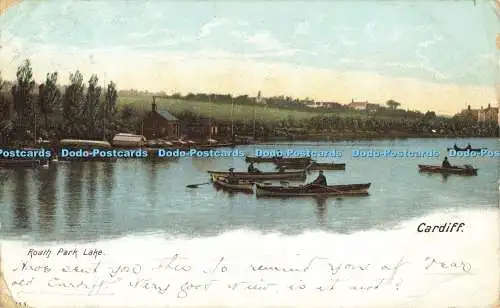 Dodo-Postcards.uk Dodo-Postcards.uk Dodo-Postcards.uk Dodo-Postcards.uk Dodo-Postcards.uk
Cardiff.
Roath Park Lake.
Have sent you this to remind you of Dear
old Cardiff. Very good view, is it not?